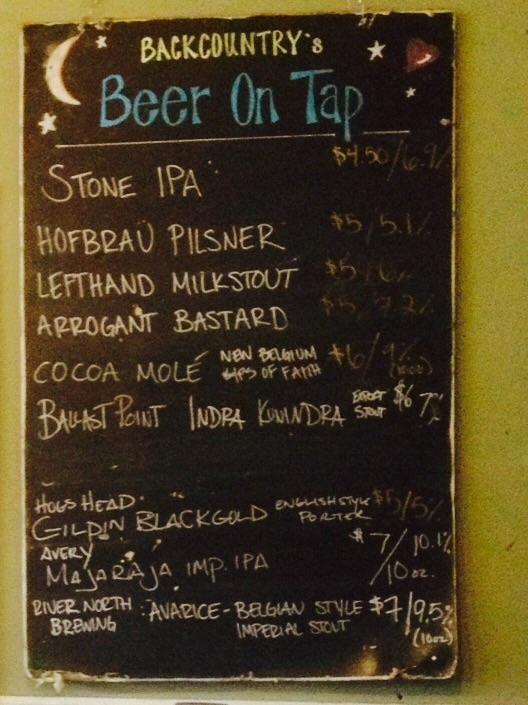 BACKCOUNTRY's
Beer On Tap
STONE IPA $4.50/6.9%
HOFBRAU PILSNER $5/5.1%
LEFTHAND MILKSTOUT $5/6%
ARROGANT BASTARD $5/7.2%
COCOA MOLÉ NEW BELGIUM LIPS OF FAITH $6/9% (10oz)
BALLAST POINT INDRA KUNINDRA EXPORT STOUT $6 7%
HOGS HEAD
GILPIN BLACKGOLD ENGLISH STYLE PORTER $5/5%
AVERY
MAJARAJA IMP. IPA $7/10.1% /10oz.
RIVER NORTH BREWING : AVARICE - BELGIAN STYLE IMPERIAL STOUT $7/9.5% (10oz)